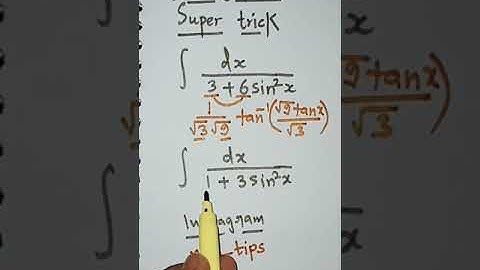 Super trick
∫ dx / (3 + 6 sin²x)
1 / (√3 √9) tan⁻ (√9 tan x / √3)
∫ dx / (1 + 3 sin²x)
tips